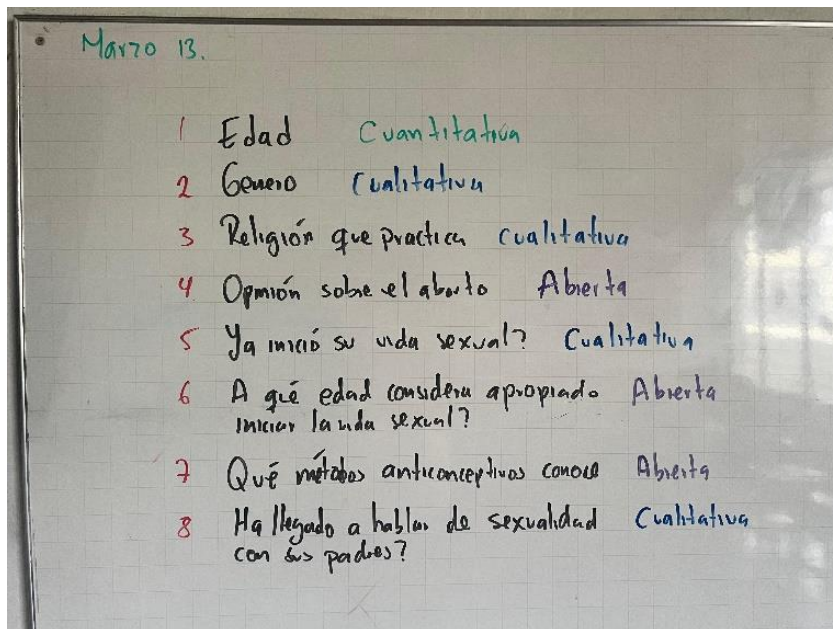 Marzo 13.
1 Edad Cuantitativa
2 Genero Cualitativa
3 Religión que practica Cualitativa
4 Opinión sobre el aborto Abierta
5 Ya inició su vida sexual? Cualitativa
6 A qué edad considera apropiado Abierta
iniciar la vida sexual?
7 Qué métodos anticonceptivos conoce Abierta
8 Ha llegado a hablar de sexualidad Cualitativa
con sus padres?